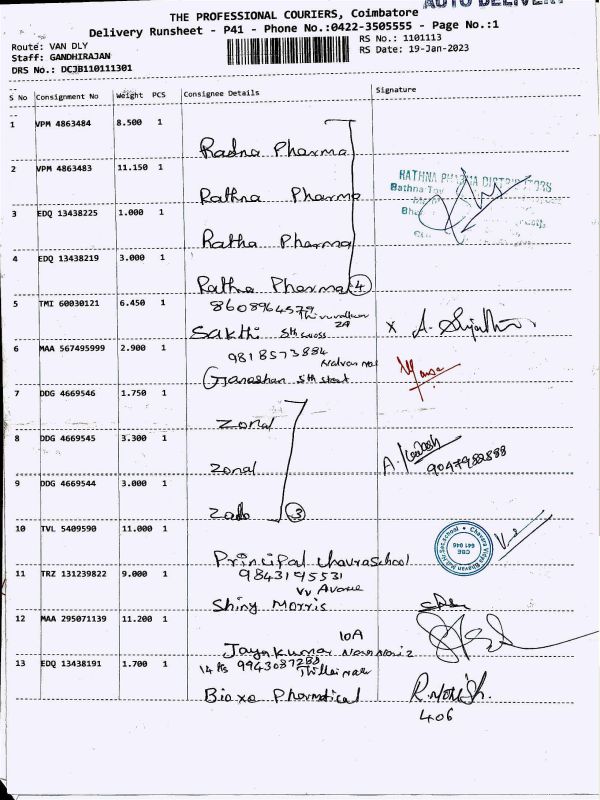 AUTO DELIVERY
THE PROFESSIONAL COURIERS, Coimbatore
Delivery Runsheet - P41 - Phone No.:0422-3505555 - Page No.:1
Route: VAN DLY
Staff: GANDHIRAJAN
DRS No.: DCJB110111301
RS No.: 1101113
RS Date: 19-Jan-2023
S No Consignment No Weight PCS Consignee Details Signature
1 VPM 4863484 8.500 1
Radna Pharma
2 VPM 4863483 11.150 1
Rathna Pharma
RATHNA PHARMA DISTRIBUTORS
3 EDQ 13438225 1.000 1
Ratha Pharma
4 EDQ 13438219 3.000 1
Rathna Pharma 4
5 TMI 60030121 6.450 1
8608964579
Sakthi 5th cross
x A. Sujatha
6 MAA 567495999 2.900 1
9818573884
5th street
7 DDG 4669546 1.750 1
Zonal
8 DDG 4669545 3.300 1
Zonal
9047982888
9 DDG 4669544 3.000 1
3
10 TVL 5409590 11.000 1
Principal Chavra School
Chavara Vidya Bhavan Mat. Hr. Sec. School
CBE
641 046
11 TRZ 131239822 9.000 1
9843195531
VV Avenue
Shiny Morris
12 MAA 295071139 11.200 1
10A
Jayakumar
13 EDQ 13438191 1.700 1
14 Ps 9943087288
Thillai nagar
R. Mohish.
406